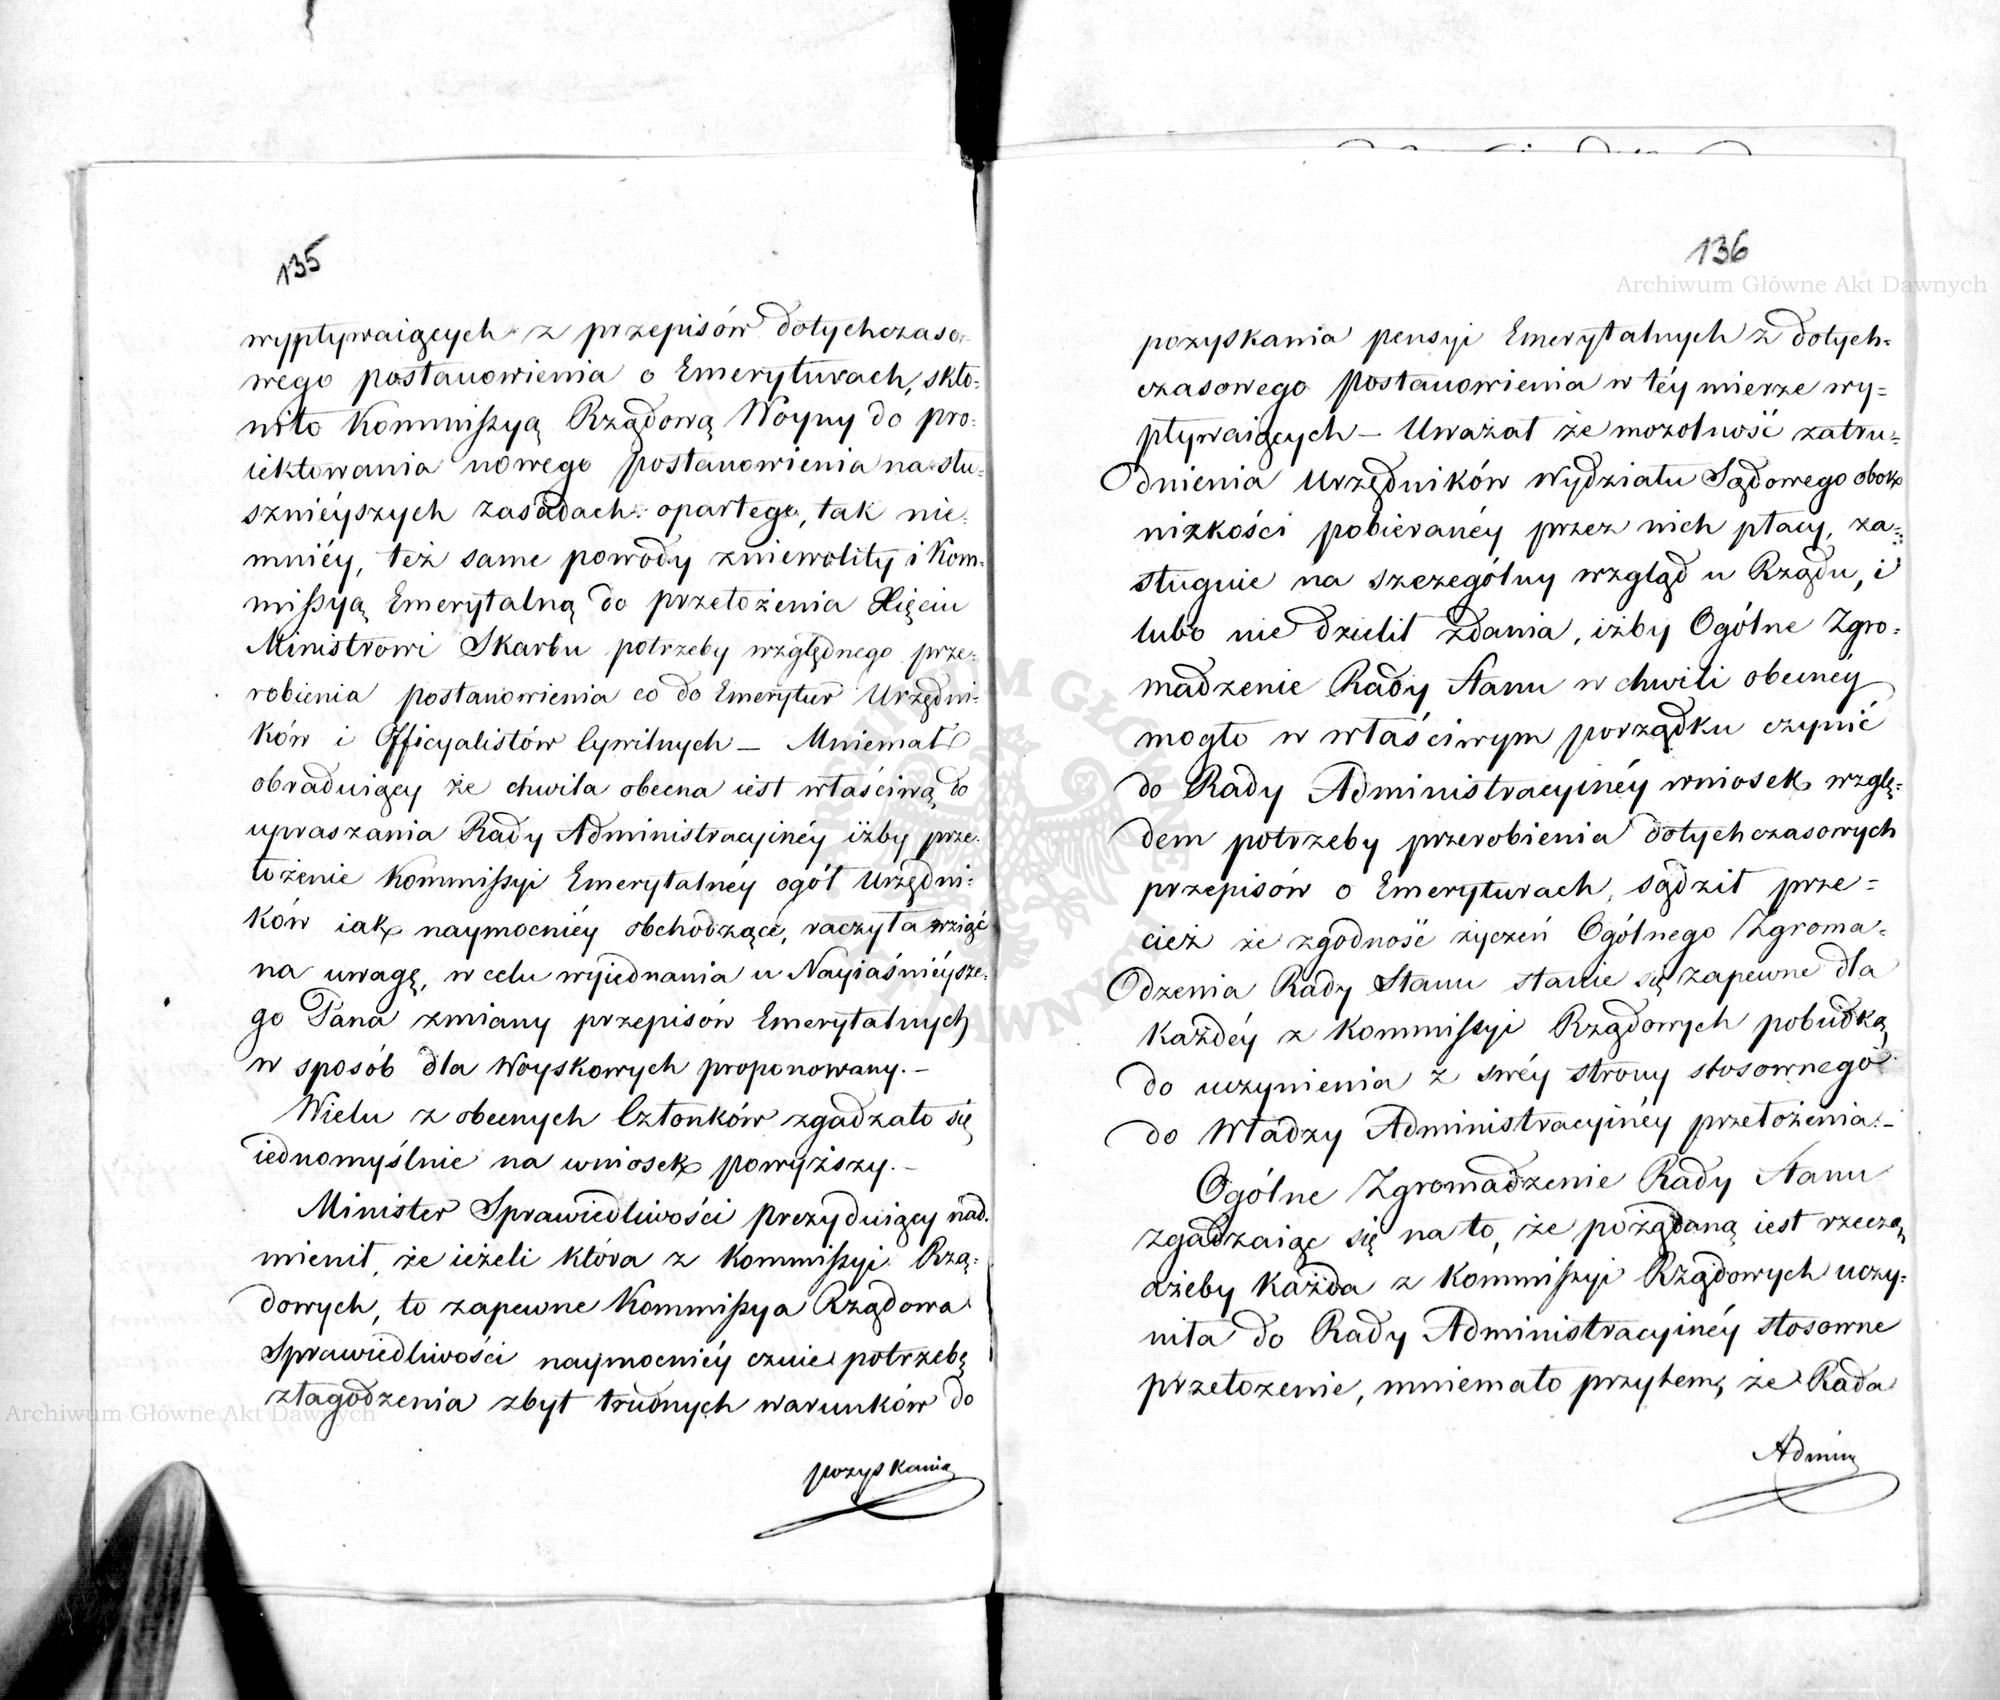 135
wypływaiących z przepisów dotychczaso-
wego postanowienia o Emeryturach, skło-
niło Kommissyą Rządową Woyny do pro-
iektowania nowego postanowienia na słu-
sznieyszych zasadach opartego, tak nie-
mniéy, też same powody zniewoliły i Kom-
missyą Emerytalną do przełożenia Xięciu
Ministrowi Skarbu potrzeby względnego prze-
robienia postanowienia co do Emerytur Urzędni-
ków i Officyalistów Cywilnych — Mniemał
obraduiący że chwila obecna iest właściwą do
upraszania Rady Administracyinéy iżby prze-
łożenie Kommissyi Emerytalnéy ogół Urzędni-
ków iak naymocniéy obchodzące, raczyła wziąć
na uwagę, w celu wyiednania u Nayiaśniéysze-
go Pana zmiany przepisów Emerytalnych
w sposób dla Woyskowych proponowany.—
Wielu z obecnych Członków zgadzało się
iednomyślnie na wniosek powyższy.—
Minister Sprawiedliwości prezyduiący nad-
mienił, że ieżeli która z Kommissyi Rzą-
dowych, to zapewne Kommissya Rządowa
Sprawiedliwości naymocniéy czuie potrzebę
złagodzenia zbyt trudnych warunków do
pozyskania
136
pozyskania pensyi Emerytalnych z dotych-
czasowego Postanowienia w téy mierze wy-
pływaiących — Uważał że mozolność zatru-
dnienia Urzędników Wydziału Sądowego obok
nizkości pobieranéy przez nich płacy, za-
sługuie na szczególny wzgląd u Rządu, i
lubo nie dzielił zdania, iżby Ogólne Zgro-
madzenie Rady Stanu w chwili obecnéy
mogło w właściwym porządku czynić
do Rady Administracyinéy wniosek wzglę-
dem potrzeby przerobienia dotychczasowych
przepisów o Emeryturach, sądził prze-
cież że zgodność życzeń Ogólnego Zgroma-
dzenia Rady Stanu stanie się zapewne dla
każdéy z Kommissyi Rządowych pobudką
do uczynienia z swéy strony stosownego
do Władzy Administracyinéy przełożenia.—
Ogólne Zgromadzenie Rady Stanu
zgadzaiąc się na to, że pożądaną iest rzeczą
ażeby każda z Kommissyi Rządowych uczy-
niła do Rady Administracyinéy stosowne
przełożenie, mniemało przytem, że Rada
Admin
Archiwum Główne Akt Dawnych
Archiwum Główne Akt Dawnych